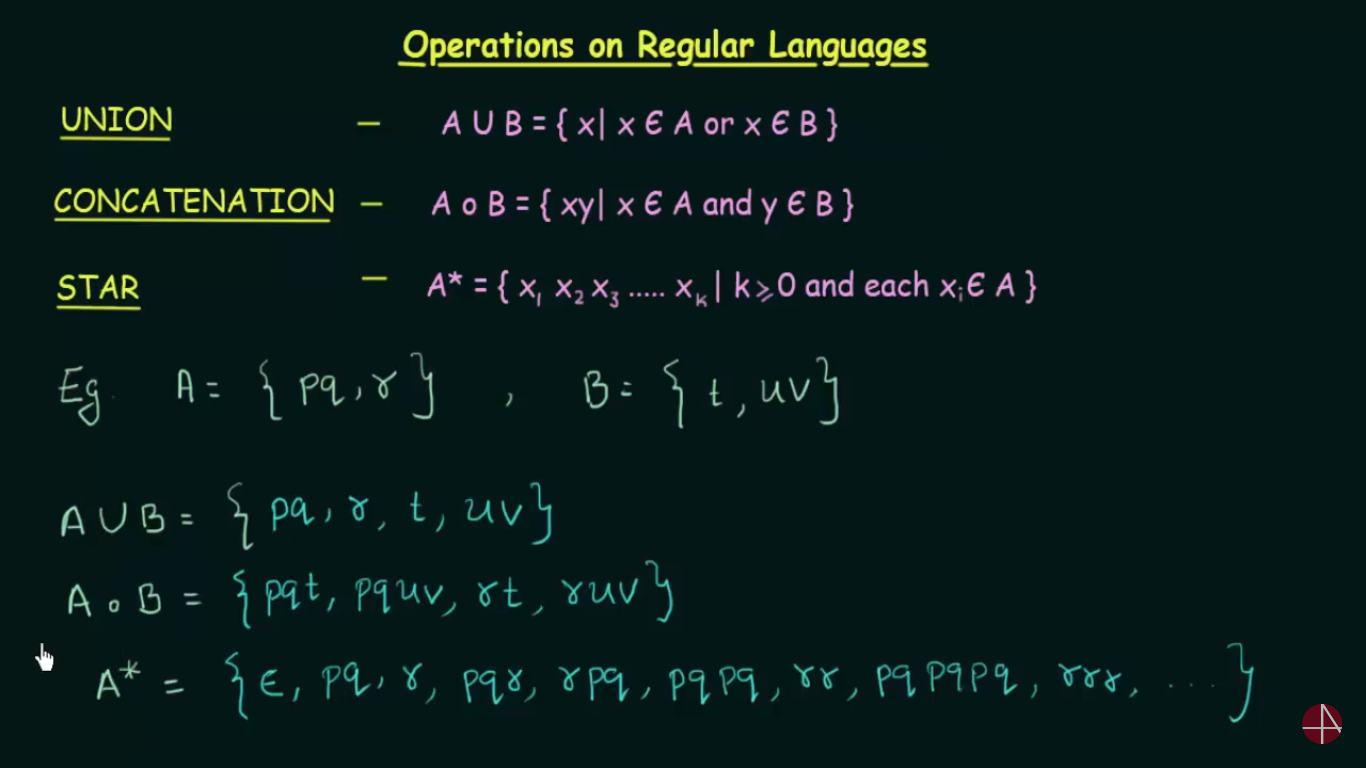 Operations on Regular Languages
UNION - A U B = { x| x Є A or x Є B }
CONCATENATION - A o B = { xy| x Є A and y Є B }
STAR - A* = { x₁ x₂ x₃ ..... xₖ | k⩾0 and each xᵢ Є A }
Eg. A = { pq, r } , B = { t, uv }
A U B = { pq, r, t, uv }
A o B = { pqt, pquv, rt, ruv }
A* = { ϵ, pq, r, pqr, rpq, pqpq, rr, pqpqpq, rrr, .... }